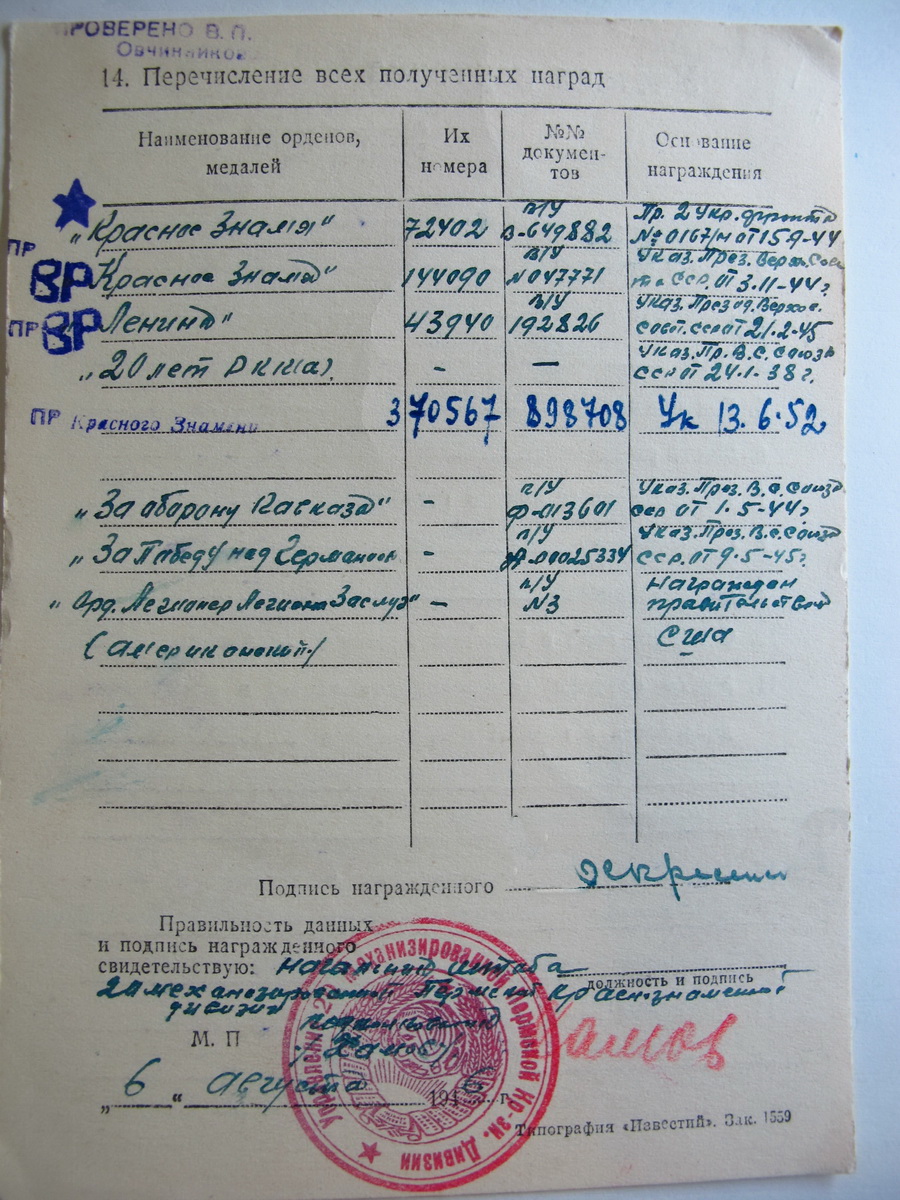 ПРОВЕРЕНО В. П.
Овчинников
14. Перечисление всех полученных наград
Наименование орденов, медалей
Их номера
№№ документов
Основание награждения
"Красное Знамя" 72402 п/у В-649882 Пр. 2 Укр. фронта № 0167/н от 15.9-44
ПР ВР "Красное Знамя" 144090 п/у № 047771 Указ. През. Верх. Сове та ССР. от 3.11-44 г.
ПР ВР "Ленина" 43940 п/у 192826 Указ. Презид. Верхов. Совт. ССР от 21.2-45
"20 лет РККА" - — Указ. Пр. В. С. Союза ССР от 24.1-38 г.
ПР Красного Знамени 370567 898708 Ук 13.6.52
"За оборону Кавказа" - п/у Ф-013601 Указ. През. В. С. Союза ССР от 1.5-44 г
"За Победу над Германией - п/у 0025334 Указ. През. В. С. Союза ССР. от 9.5-45 г.
"Орд. Легионер Легиона Заслуг" — п/у № 3 Награжден правительством
(американский) США
Подпись награжденного
Правильность данных
и подпись награжденного
свидетельствую: Начальник штаба
должность и подпись
механизированной Краснознаменной
дивизии подполковник
М. П
"6" августа 194 г.
Управление механизированной Кр-зн. Дивизии
Типография «Известий». Зак. 1559